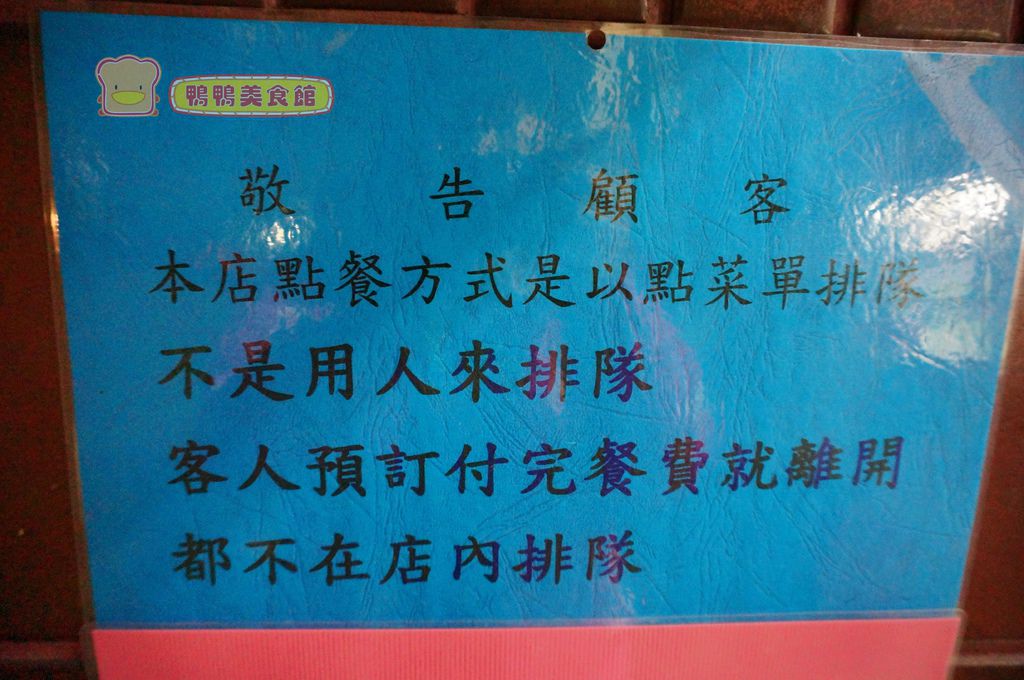 鴨鴨美食館
敬告顧客
本店點餐方式是以點菜單排隊
不是用人來排隊
客人預訂付完餐費就離開
都不在店內排隊